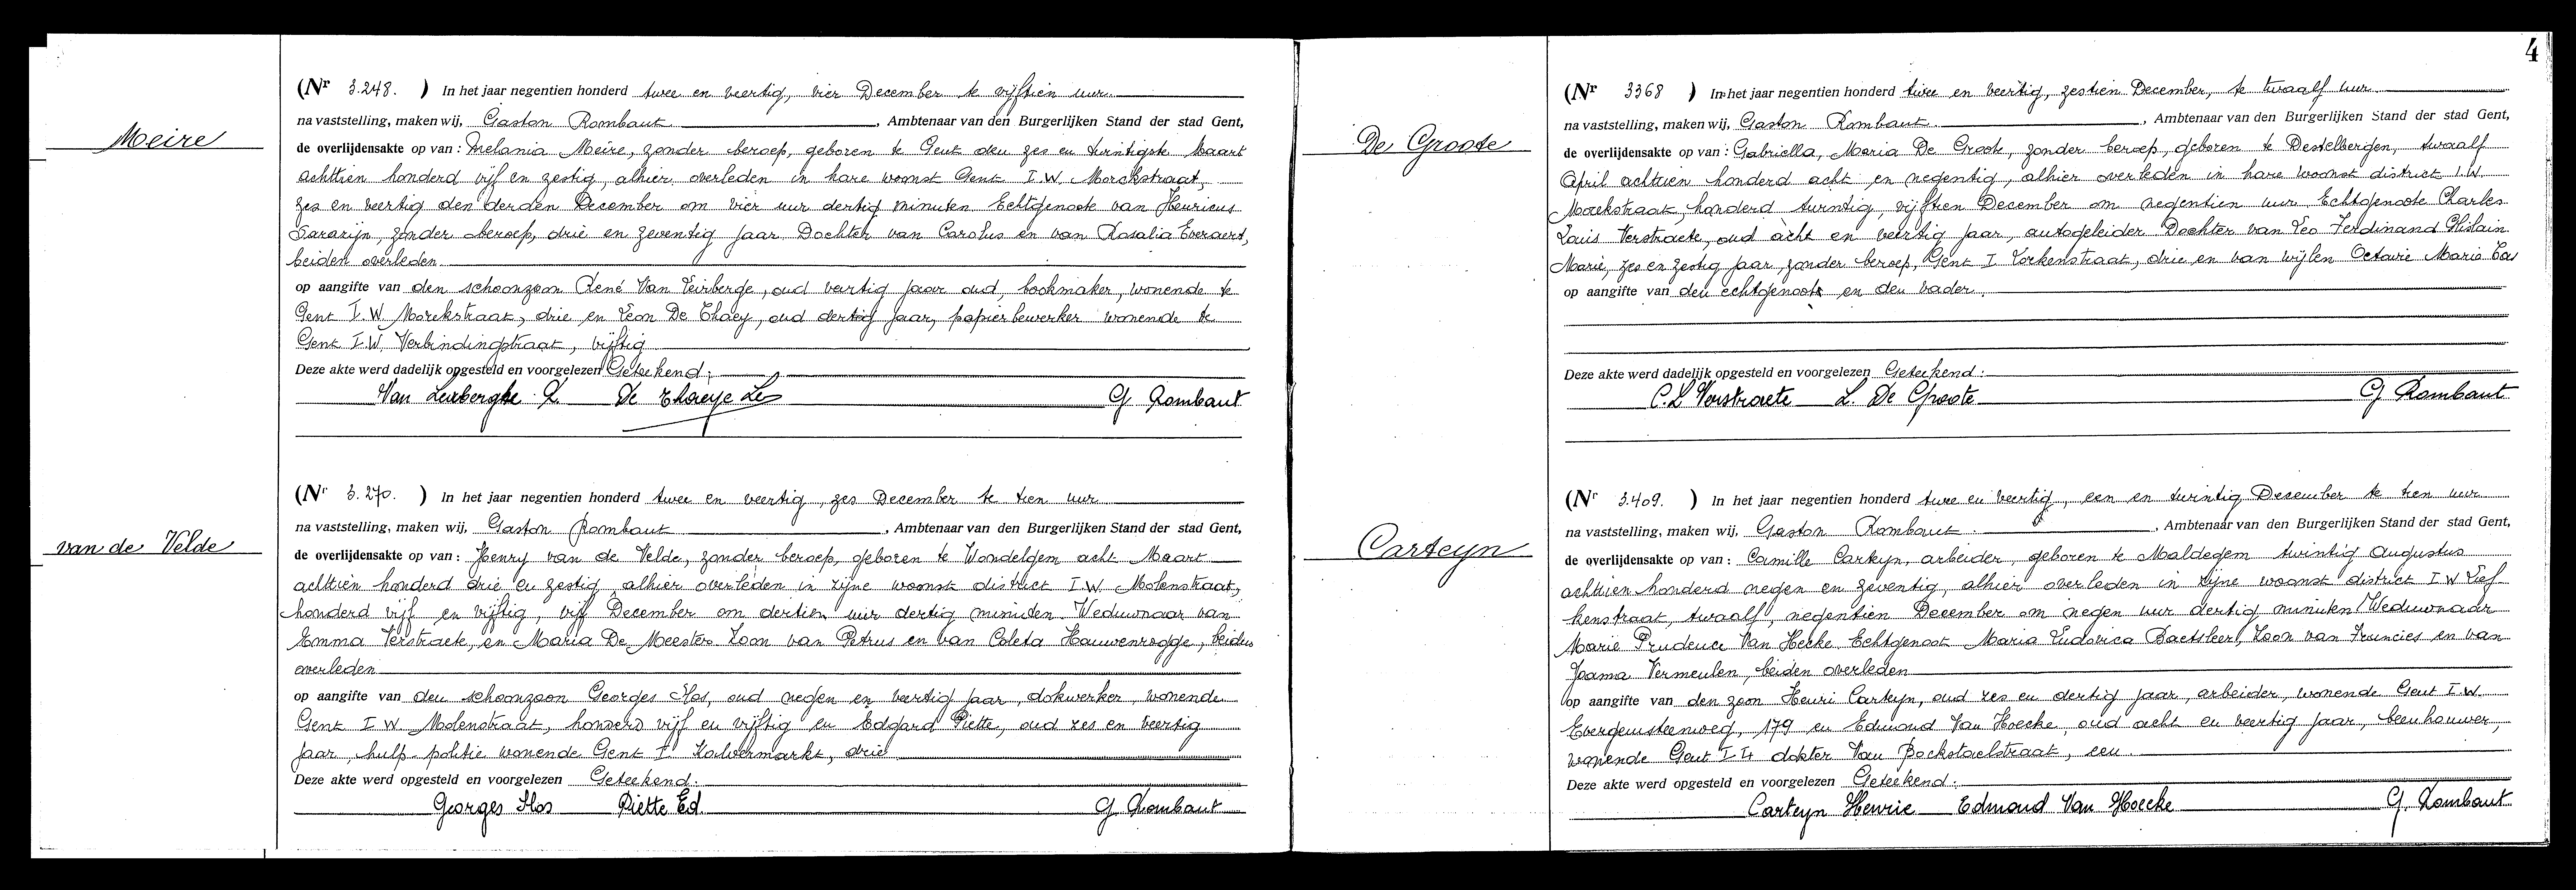 Meire
(Nr 3.248. ) In het jaar negentien honderd twee en veertig, vier December te vijftien uur
na vaststelling, maken wij, Gaston Rombaut, Ambtenaar van den Burgerlijken Stand der stad Gent,
de overlijdensakte op van: Melania Meire, zonder beroep, geboren te Gent den zes en twintigste Maart
achttien honderd vijf en zestig, alhier overleden in hare woonst Gent I.W. Morekstraat,
zes en veertig den derden December om vier uur dertig minuten Echtgenoote van Henricus
zonder beroep, drie en zeventig jaar Dochter van Carolus en van Rosalia Everaert,
beiden overleden
op aangifte van den schoonzoon René Van Leirberge, oud veertig jaar oud, bookmaker, wonende te
Gent I.W. Morekstraat, drie en Leon De Thaey, oud dertig jaar, papierbewerker wonende te
Gent I.W. Verbindingstraat, vijftig
Deze akte werd dadelijk opgesteld en voorgelezen Geteekend;
Van Leirberghe R De Thaeye Le G Rombaut
van de Velde
(Nr 3.270. ) In het jaar negentien honderd twee en veertig, zes December te tien uur
na vaststelling, maken wij, Gaston Rombaut, Ambtenaar van den Burgerlijken Stand der stad Gent,
de overlijdensakte op van: Henry van de Velde, zonder beroep, geboren te Wondelgem acht Maart
achttien honderd drie en zestig, alhier overleden in zijne woonst district I.W. Molenstraat,
honderd vijf en vijftig, vijf December om dertien uur dertig minuten. Weduwnaar van
Emma Verstraete, en Maria De Meester. Zoon van Petrus en van Coleta Hauwenrogge, beiden
overleden
op aangifte van den schoonzoon Georges Slos, oud negen en veertig jaar, dokwerker, wonende
Gent I W Molenstraat, honderd vijf en vijftig en Edgard Piette, oud zes en veertig
jaar, hulp-politie wonende Gent I Kalvermarkt, drie
Deze akte werd opgesteld en voorgelezen Geteekend:
Georges Slos Piette Ed. G Rombaut
4
De Groote
(Nr 3368 ) In het jaar negentien honderd twee en veertig, zestien December, te twaalf uur
na vaststelling, maken wij, Gaston Rombaut, Ambtenaar van den Burgerlijken Stand der stad Gent,
de overlijdensakte op van: Gabriella, Maria De Groote, zonder beroep, geboren te Destelbergen, twaalf
April achttien honderd acht en negentig, alhier overleden in hare woonst district I.W.
Morekstraat, honderd twintig, vijftien December om negentien uur Echtgenoote Charles
Louis Verstraete, oud acht en veertig jaar, autogeleider Dochter van Leo Ferdinand Ghislain
Marie, zes en zestig jaar, zonder beroep, Gent I Vorkenstraat, drie en van wijlen Octavie Maria
op aangifte van den echtgenoot en den vader.
Deze akte werd dadelijk opgesteld en voorgelezen Geteekend:
C.L Verstraete L. De Groote G Rombaut
Carteyn
(Nr 3.409. ) In het jaar negentien honderd twee en veertig, een en twintig December te tien uur
na vaststelling, maken wij, Gaston Rombaut, Ambtenaar van den Burgerlijken Stand der stad Gent,
de overlijdensakte op van: Camille Carteyn, arbeider, geboren te Maldegem twintig Augustus
achttien honderd negen en zeventig, alhier overleden in zijne woonst district I W Lief
kenstraat, twaalf, negentien December om negen uur dertig minuten Weduwnaar
Marie Prudence Van Hecke Echtgenoot Maria Ludovica Baetsleer, Zoon van Francies en van
Joanna Vermeulen, beiden overleden
op aangifte van den zoon Henri Carteyn, oud zes en dertig jaar, arbeider, wonende Gent I.W.
Evergemsteenweg, 179 en Edmond Van Hoecke, oud acht en veertig jaar, beenhouwer,
wonende Gent I dokter Van Bockstaelstraat, een.
Deze akte werd opgesteld en voorgelezen Geteekend:
Carteyn Henrie Edmond Van Hoecke G. Rombaut